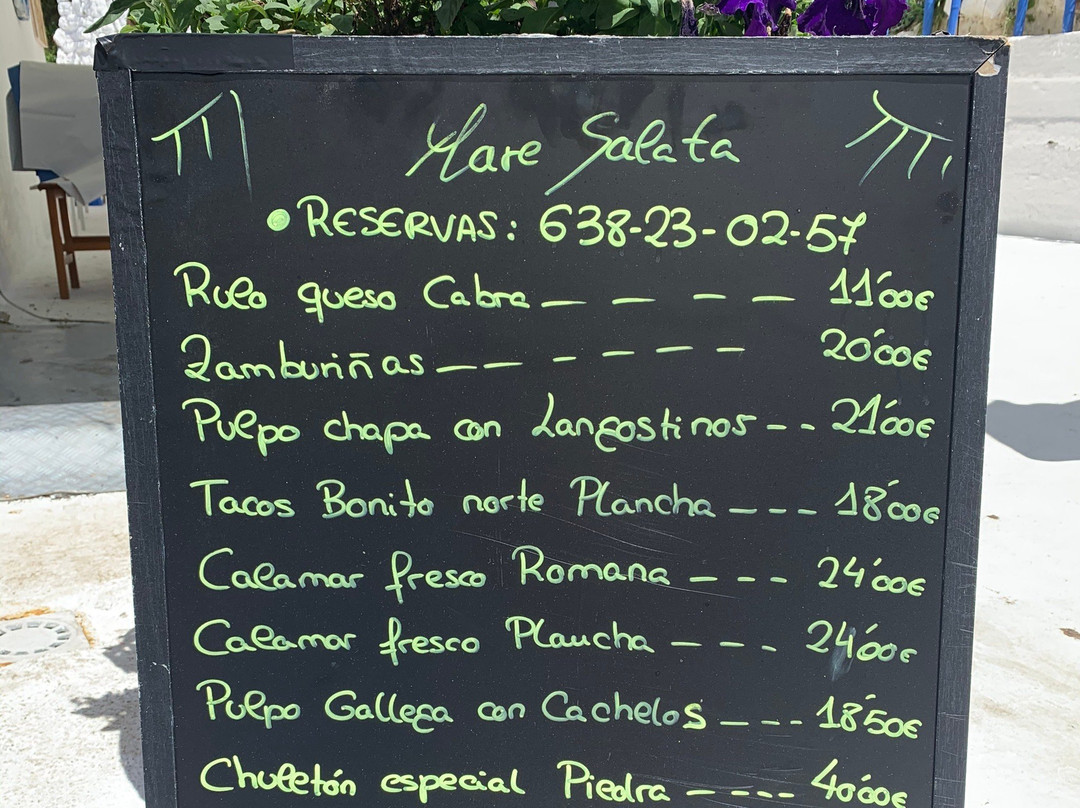 Mare Salata
• RESERVAS: 638-23-02-57
Rulo queso Cabra — — — — 11'00€
Zamburiñas — — - - — — 20'00€
Pulpo chapa con Langostinos - - 21'00€
Tacos Bonito norte Plancha - - - 18'00€
Calamar fresco Romana - - - 24'00€
Calamar fresco Plancha - - - 24'00€
Pulpo Gallega con Cachelos - - - 18'50€
Chuletón especial Piedra - - - - 40'00€